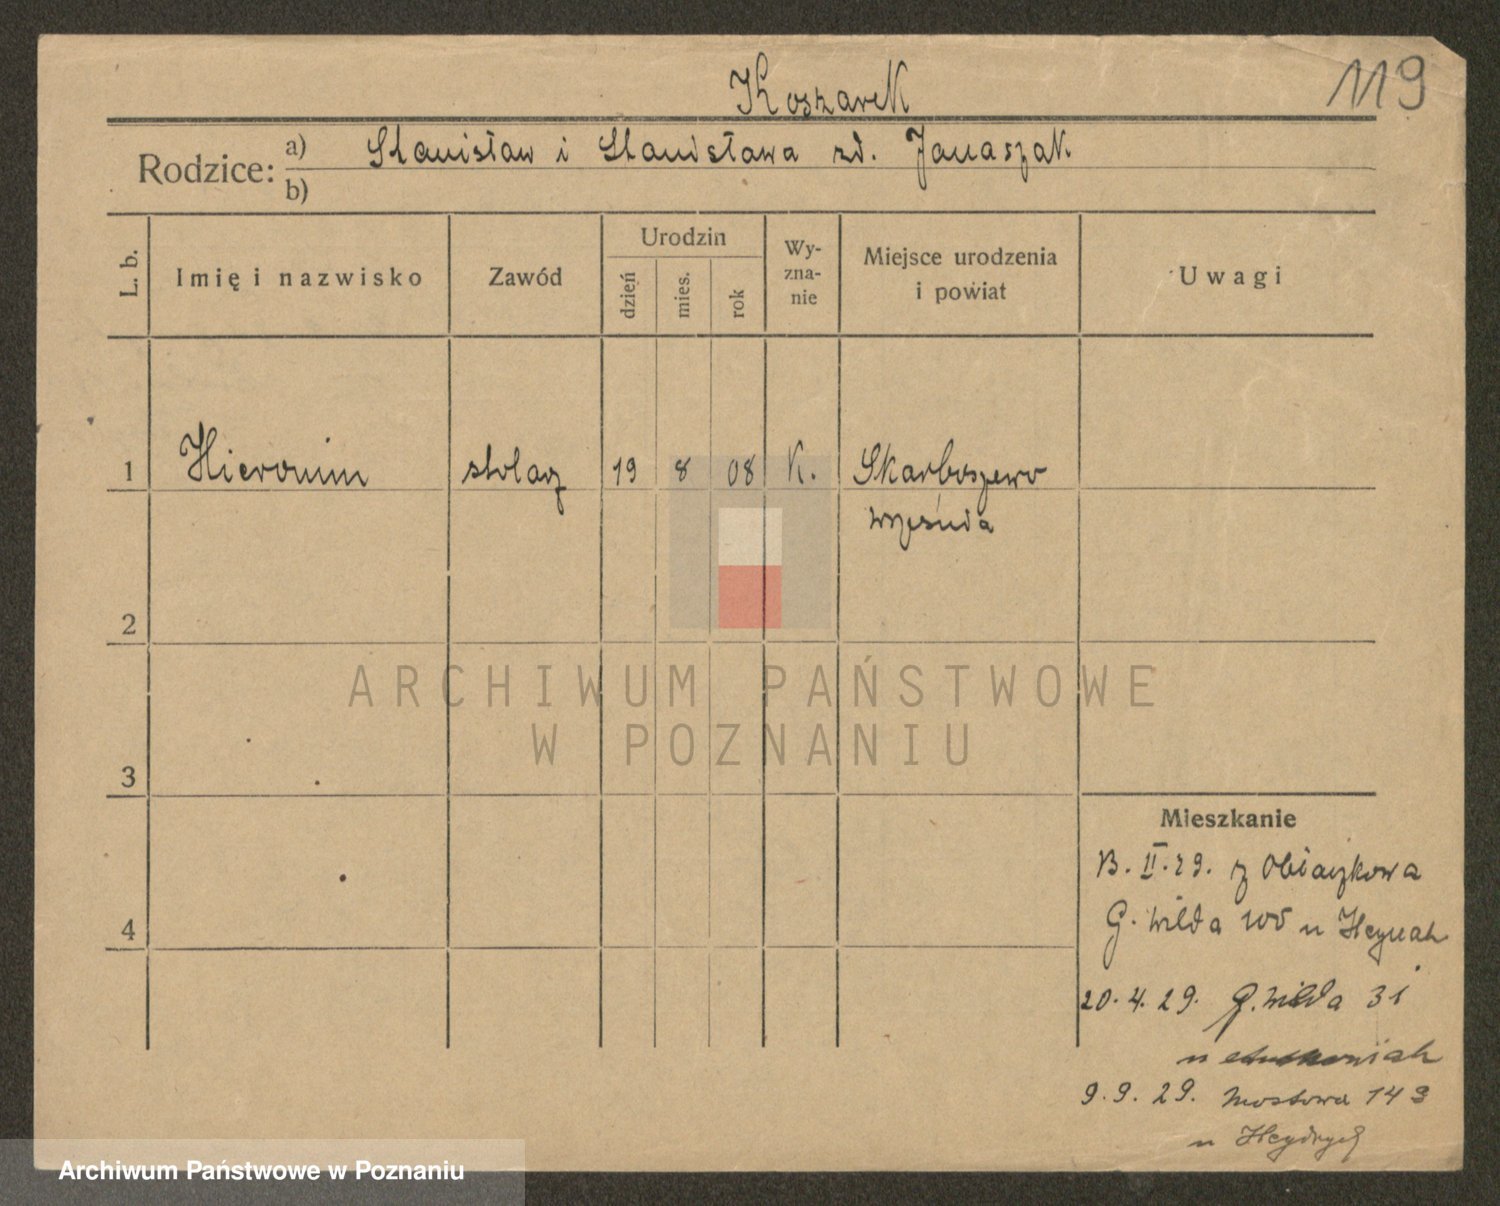 119
Koszarek
Rodzice:
a) Stanisław i Stanisława zd. Janaszak
b)
L. b.
Imię i nazwisko
Zawód
Urodzin
dzień
mies.
rok
Wy-
zna-
nie
Miejsce urodzenia
i powiat
Uwagi
1 Hieronim stolarz 19 8 08 K. Skarboszewo
września
2
3
4
Mieszkanie
13. II. 29. z Obiaczkowa
G. Wilda 105 u
20. 4. 29. G. Wilda 31
u
9. 9. 29. Mostowa 14
u
ARCHIWUM PAŃSTWOWE
W POZNANIU
Archiwum Państwowe w Poznaniu